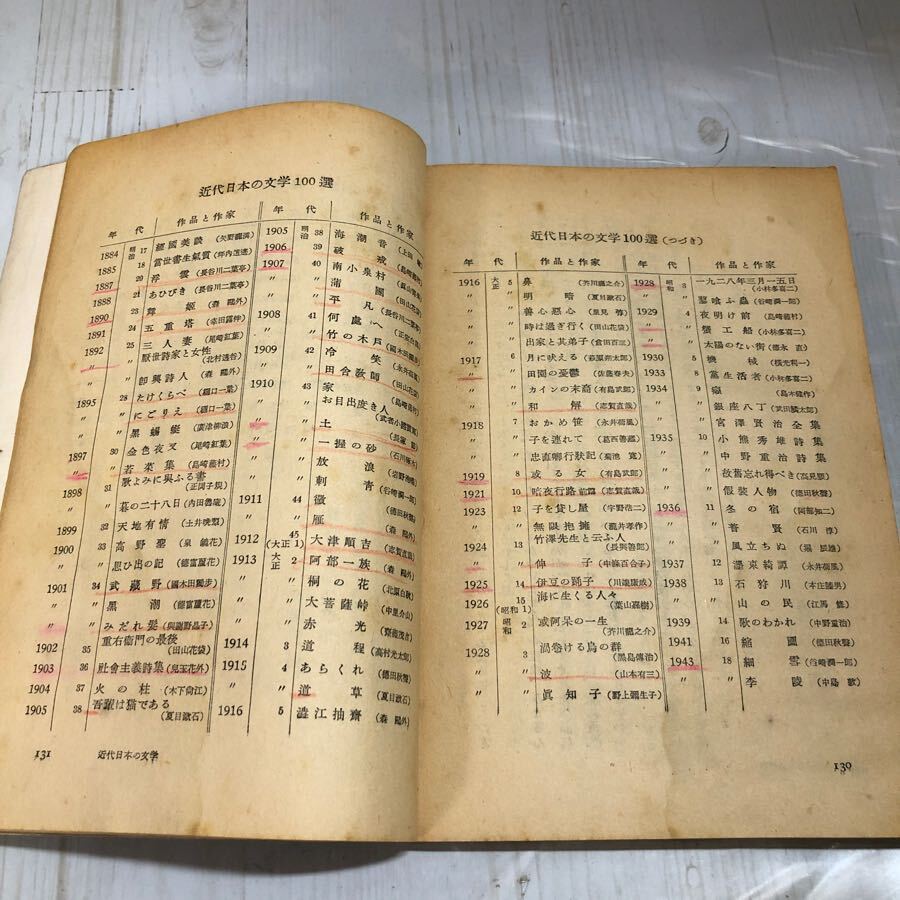 近代日本の文学100選
年 代 作品と作家
1884 明治 17 經國美談(矢野龍溪)
1885 18 當世書生氣質(坪内逍遙)
1887 20 浮雲(長谷川二葉亭)
1888 21 あひびき(長谷川二葉亭)
1890 23 舞姫(森鷗外)
1891 24 五重塔(幸田露伴)
1892 25 三人妻(尾崎紅葉)
〃 厭世詩家と女性(北村透谷)
〃 即興詩人(森鷗外)
1895 28 たけくらべ(樋口一葉)
〃 にごりえ(樋口一葉)
〃 黒蜴蜓(廣津柳浪)
1897 30 金色夜叉(尾崎紅葉)
〃 若菜集(島崎藤村)
1898 31 歌よみに與ふる書(正岡子規)
〃 暮の二十八日(内田魯庵)
1899 32 天地有情(土井晩翠)
1900 33 高野聖(泉鏡花)
〃 思ひ出の記(德富蘆花)
1901 34 武蔵野(國木田獨歩)
〃 黒潮(德富蘆花)
〃 みだれ髪(與謝野晶子)
1902 35 重右衛門の最後(田山花袋)
1903 36 社會主義詩集(兒玉花外)
1904 37 火の柱(木下尚江)
1905 38 吾輩は猫である(夏目漱石)
年 代 作品と作家
1905 明治 38 海潮音(上田敏)
1906 39 破戒(島崎藤村)
1907 40 南小泉村
〃 蒲團(田山花袋)
〃 平凡
1908 41 何處へ
〃 竹の木戸(國木田獨歩)
1909 42 冷笑(永井荷風)
〃 田舎教師(田山花袋)
1910 43 家(島崎藤村)
〃 お目出度き人(武者小路實篤)
〃 土(長塚節)
〃 一握の砂(石川啄木)
〃 放浪(岩野泡鳴)
〃 刺青(谷崎潤一郎)
1911 44 黴(德田秋聲)
〃 雁(森鷗外)
1912 45(大正1) 大津順吉(志賀直哉)
1913 大正 2 阿部一族(森鷗外)
〃 桐の花(北原白秋)
〃 大菩薩峠(中里介山)
〃 赤光(齋藤茂吉)
1914 3 道程(高村光太郎)
1915 4 あらくれ(德田秋聲)
〃 道草(夏目漱石)
1916 5 澁江抽齋(森鷗外)
131 近代日本の文学
近代日本の文学100選(つづき)
年 代 作品と作家
1916 大正 5 鼻(芥川龍之介)
〃 明暗(夏目漱石)
〃 善心惡心(里見弴)
〃 時は過ぎ行く(田山花袋)
〃 出家と其弟子(倉田百三)
1917 6 月に吠える(萩原朔太郎)
〃 田園の憂鬱(佐藤春夫)
〃 カインの末裔(有島武郎)
〃 和解(志賀直哉)
1918 7 おかめ笹(永井荷風)
〃 子を連れて(葛西善藏)
〃 忠直卿行狀記(菊池寛)
1919 8 或る女(有島武郎)
1921 10 暗夜行路 前篇(志賀直哉)
1923 12 子を貸し屋(宇野浩二)
〃 無限抱擁(瀧井孝作)
1924 13 竹澤先生と云ふ人(長與善郎)
〃 伸子(中條百合子)
1925 14 伊豆の踊子(川端康成)
1926 15(昭和1) 海に生くる人々(葉山嘉樹)
1927 昭和 2 或阿呆の一生(芥川龍之介)
1928 3 渦巻ける烏の群(黒島傳治)
〃 波(山本有三)
〃 眞知子(野上彌生子)
年 代 作品と作家
1928 昭和 3 一九二八年三月一五日(小林多喜二)
〃 蓼喰ふ蟲(谷崎潤一郎)
1929 4 夜明け前(島崎藤村)
〃 蟹工船(小林多喜二)
〃 太陽のない街(德永直)
1930 5 機械(橫光利一)
1933 8 黨生活者(小林多喜二)
1934 9 癩(島木健作)
〃 銀座八丁(武田麟太郎)
〃 宮澤賢治全集
1935 10 小熊秀雄詩集
〃 中野重治詩集
〃 故舊忘れ得べき(高見順)
〃 假装人物(德田秋聲)
1936 11 冬の宿(阿部知二)
〃 普賢(石川淳)
〃 風立ちぬ(堀辰雄)
1937 12 濹東綺譚(永井荷風)
1938 13 石狩川(本庄陸男)
〃 山の民(江馬修)
1939 14 歌のわかれ(中野重治)
1941 16 縮圖(德田秋聲)
1943 18 細雪(谷崎潤一郎)
〃 李陵(中島敦)
130